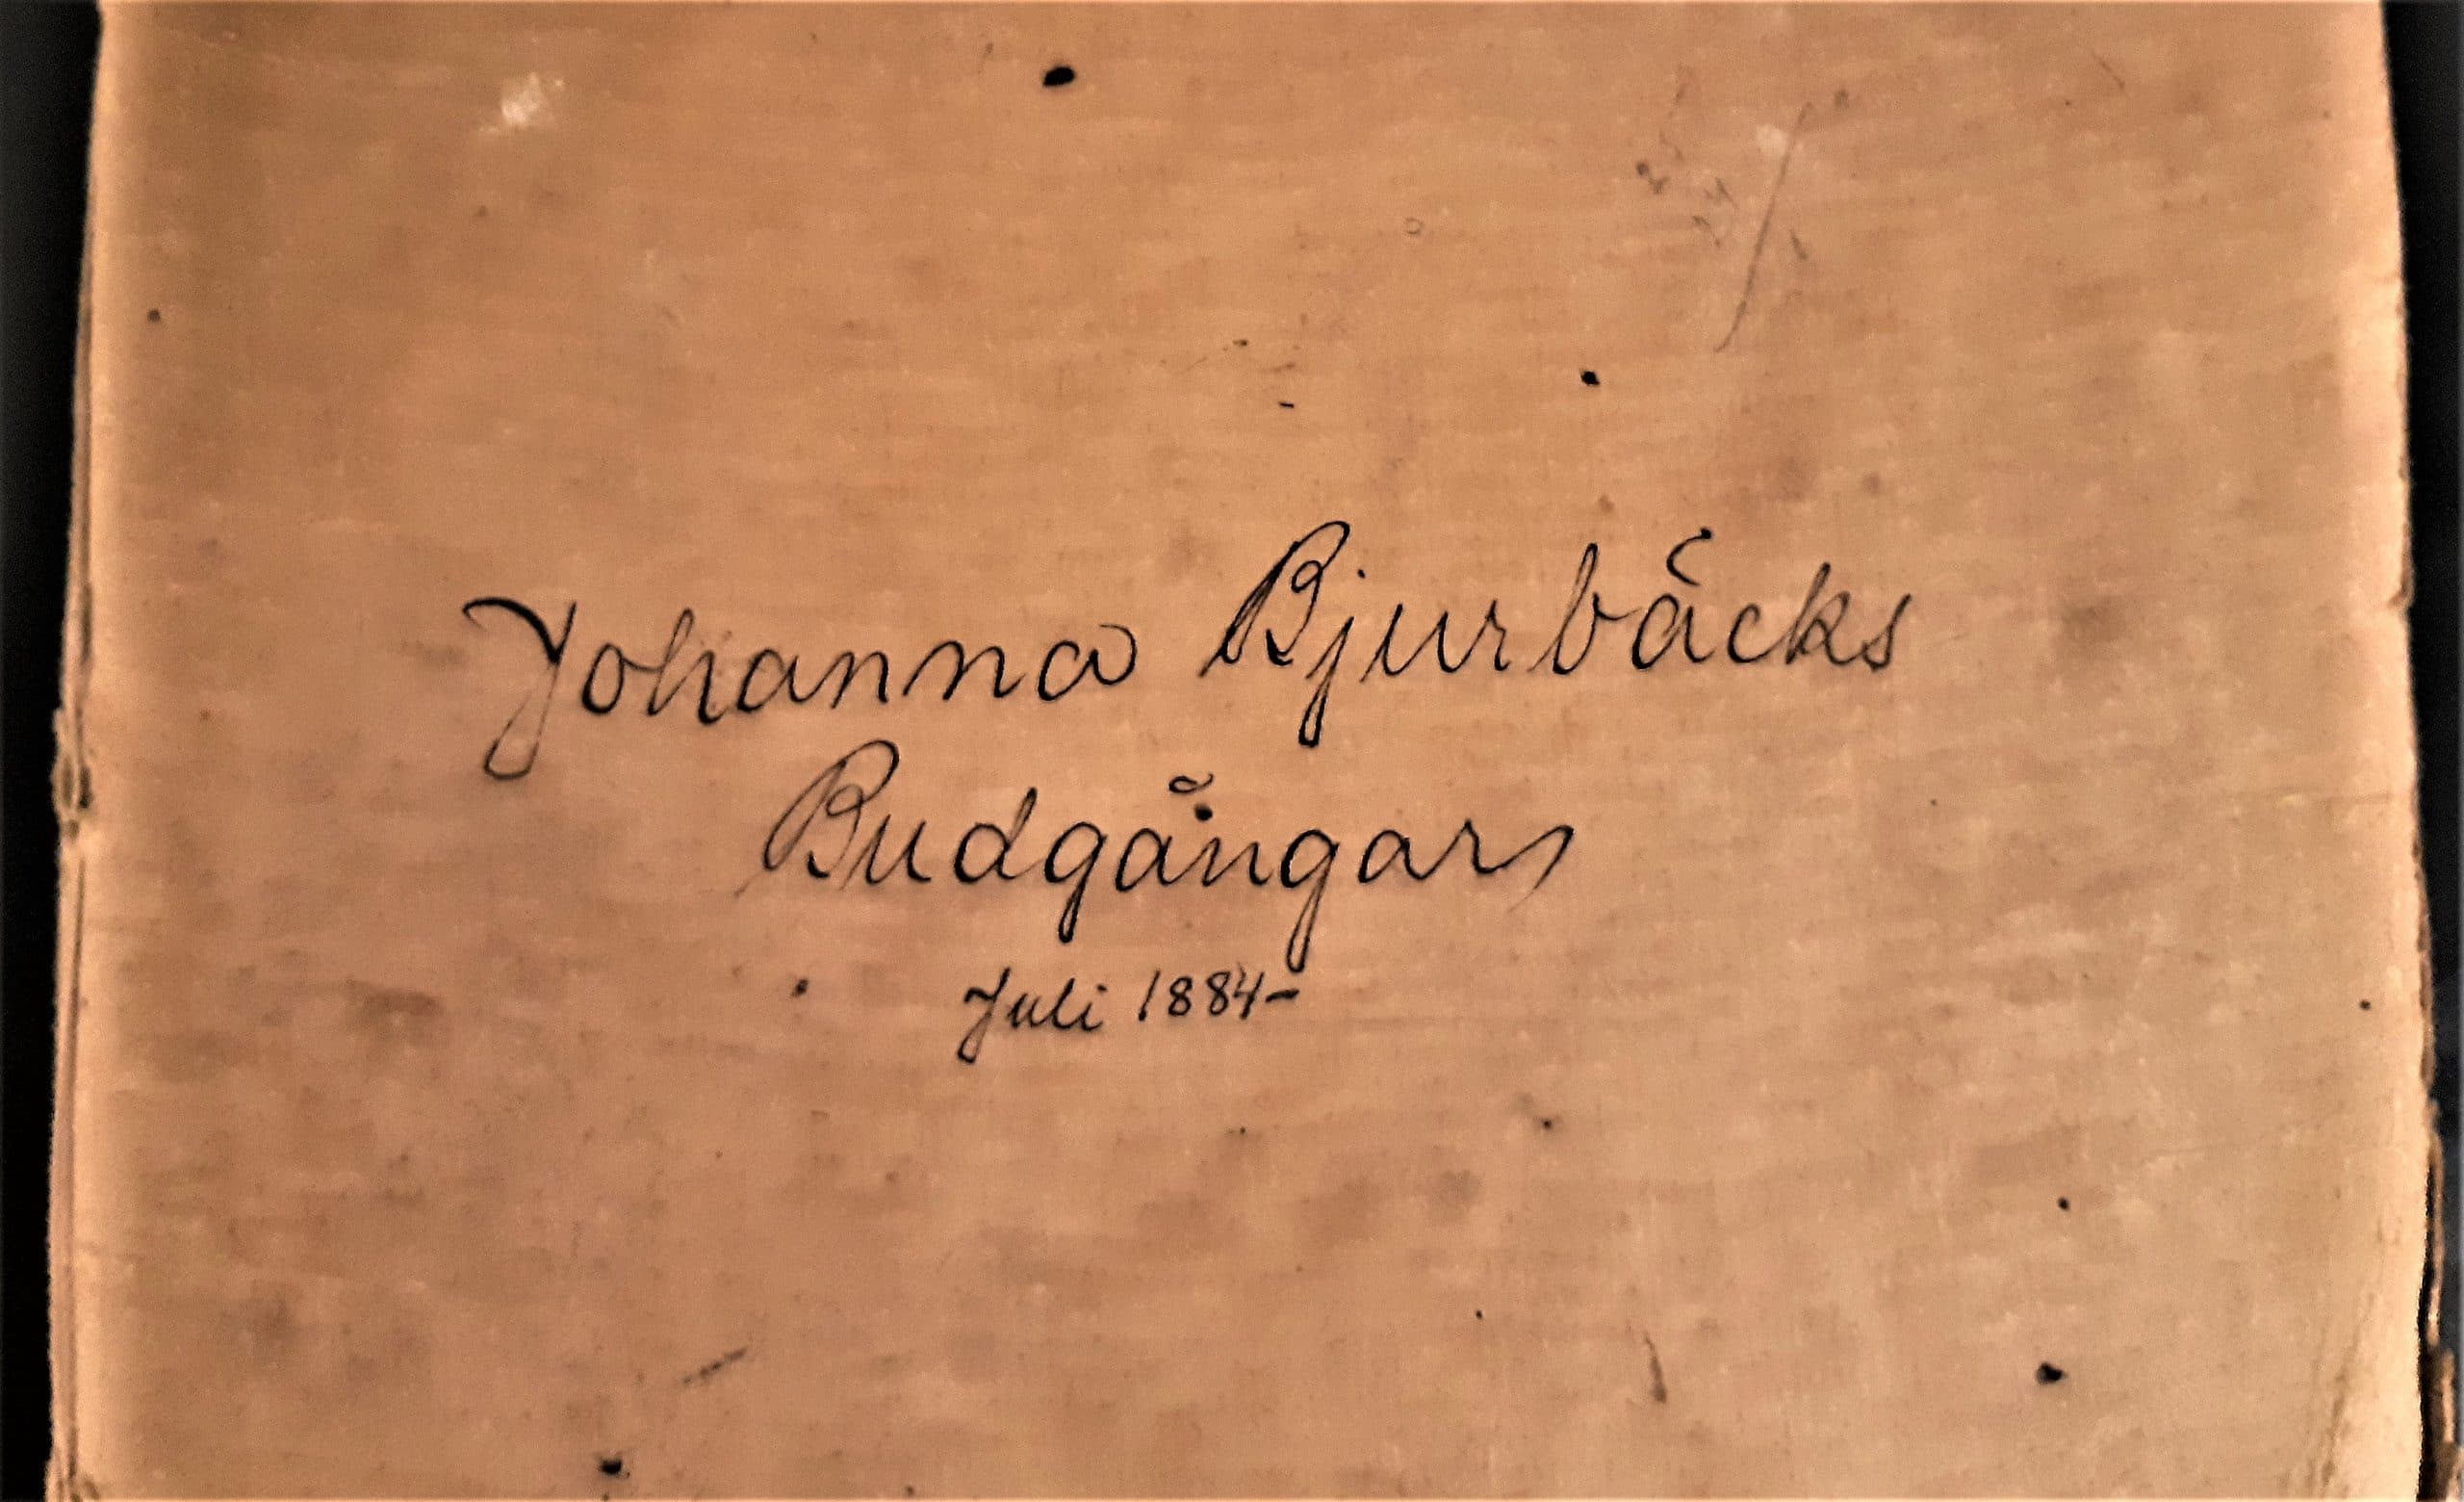 Johanna Bjurbäcks
Budgångar
Juli 1884-